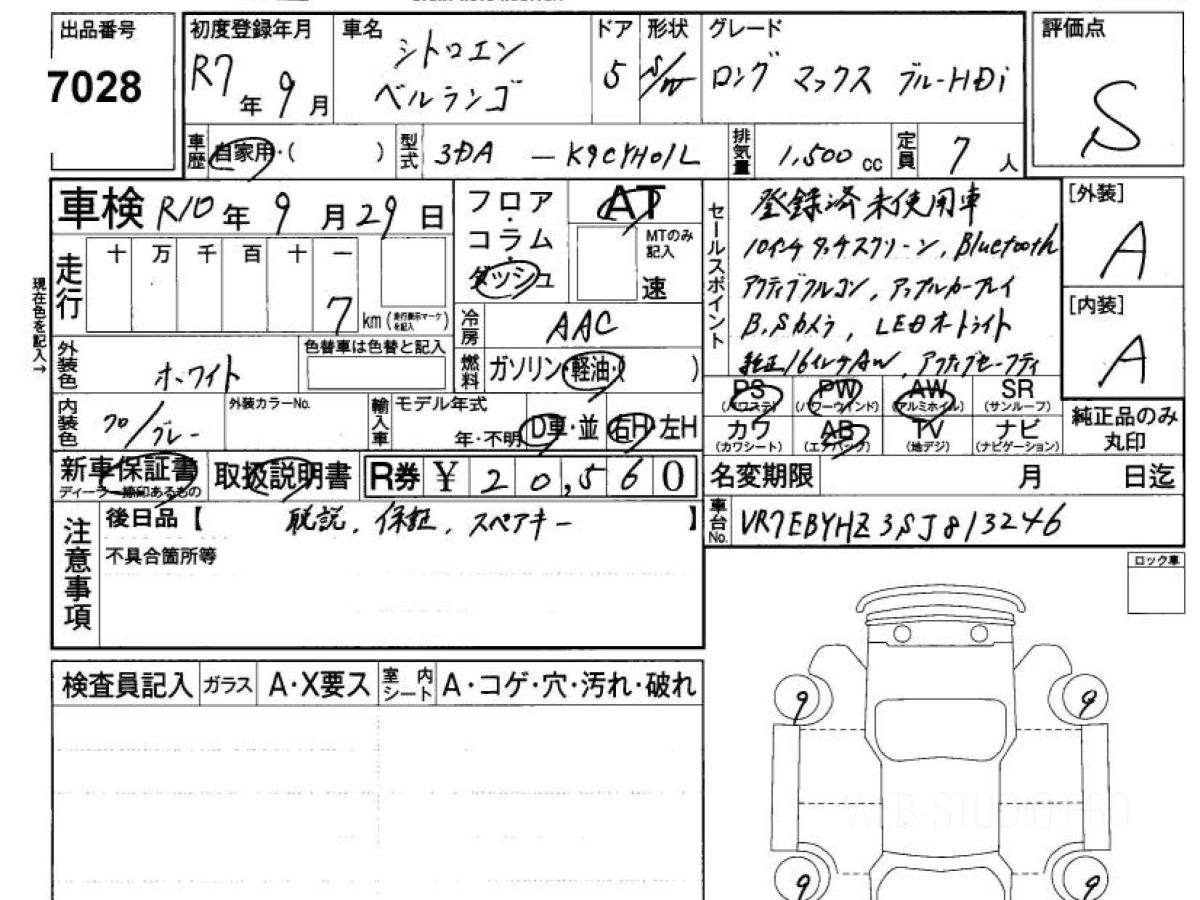 出品番号
7028
初度登録年月
R7年9月
車名
シトロエン
ベルランゴ
ドア
5
形状
S/W
グレード
ロング マックス ブルーHDi
評価点
S
車歴
自家用・( )
型式
3DA - K9CYH01L
排気量
1,500cc
定員
7人
車検 R10年9月29日
フロア・コラム・ダッシュ
AT
MTのみ記入
速
セールスポイント
登録済未使用車
10インチタッチスクリーン、Bluetooth
アクティブクルコン、アップルカープレイ
B.Sカメラ、LEDオートライト
純正16インチAW、アクティブセーフティ
[外装]
A
[内装]
A
走行
十 万 千 百 十 一
7
km (走行表示マークを記入)
現在色を記入→
冷房
AAC
外装色
ホワイト
色替車は色替と記入
燃料
ガソリン・軽油・( )
PS (パワステ)
PW (パワーウインド)
AW (アルミホイル)
SR (サンルーフ)
カワ (カワシート)
AB (エアバック)
TV (地デジ)
ナビ (ナビゲーション)
純正品のみ丸印
内装色
クロ/グレー
外装カラーNo.
輸入車
モデル年式
年・不明
D車・並
右H・左H
新車保証書
ディーラー捺印あるもの
取扱説明書
R券 ¥ 20,560
名変期限
月 日迄
車台No.
VR7EBYHZ3SJ813246
注意事項
後日品【 取説、保証、スペアキー 】
不具合箇所等
ロック車
検査員記入
ガラス
A・X要ス
室内シート
A・コゲ・穴・汚れ・破れ
9
9
WEB-STUDIO.PRO
9
9